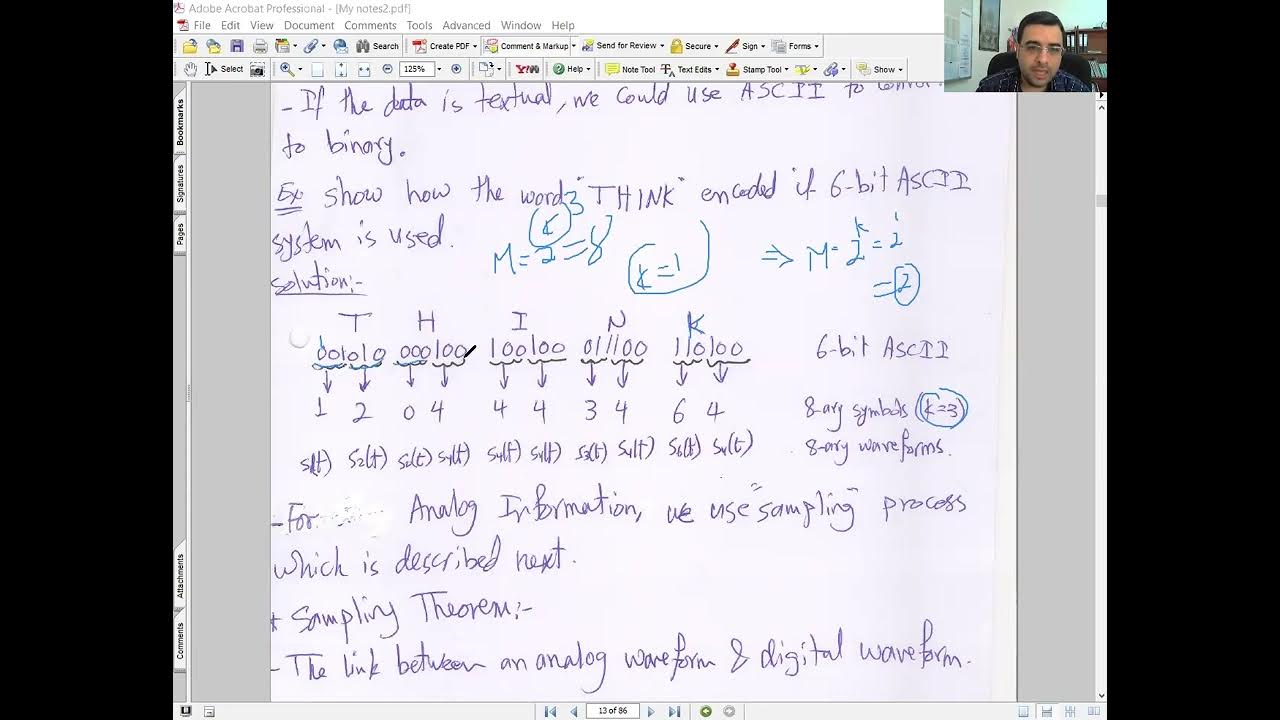 Adobe Acrobat Professional - [My notes2.pdf]
File Edit View Document Comments Tools Advanced Window Help
Search Create PDF Comment & Markup Send for Review Secure Sign Forms
Select 125% Help Note Tool Text Edits Stamp Tool Show
Bookmarks
Signatures
Pages
Attachments
Comments
- If the data is textual, we could use ASCII to
to binary.
Ex: show how the word "THINK" encoded if 6-bit ASCII
system is used.
M = 2^k = 8
3
k=1
⇒ M = 2^k = 2^1
= 2
Solution:-
T H I N K
001010 000100 100100 011100 110100 6-bit ASCII
1 2 0 4 4 4 3 4 6 4 8-ary symbols (k=3)
S1(t) S2(t) S0(t) S4(t) S4(t) S4(t) S3(t) S4(t) S6(t) S4(t) 8-ary waveforms.
- For Analog Information, we use "sampling" process
which is described next.
* Sampling Theorem:-
- The link between an analog waveform & digital waveform.
13 of 86